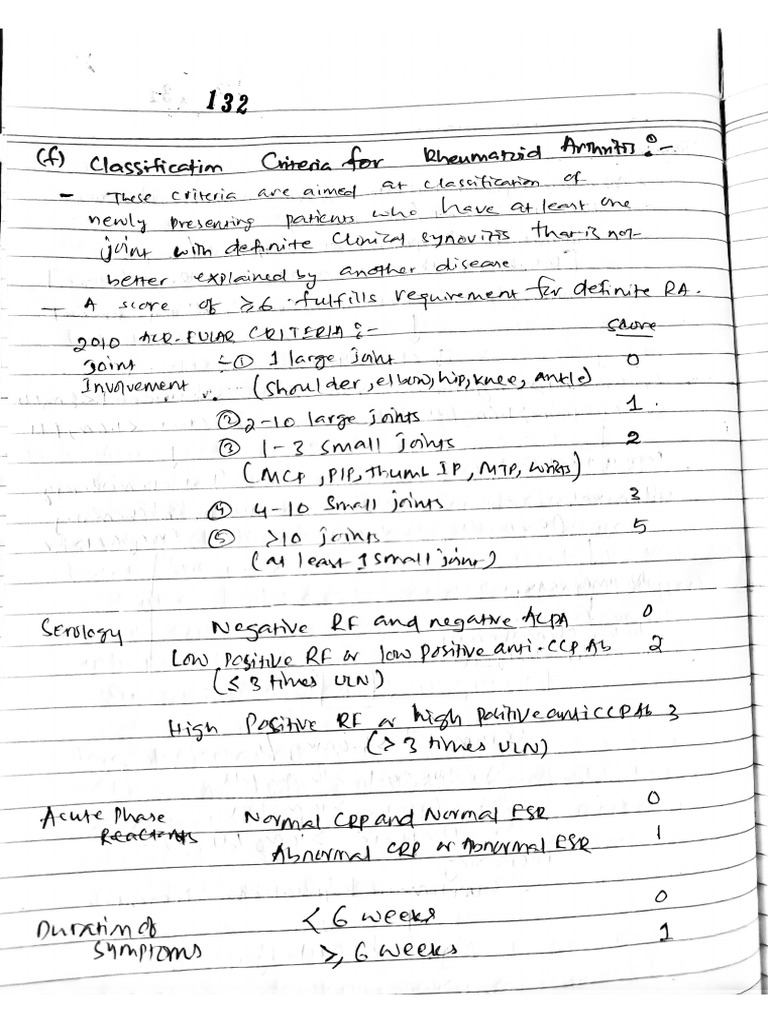 132
(f) Classification Criteria for Rheumatoid Arthritis :-
- These criteria are aimed at classification of
newly presenting patients who have at least one
joint with definite clinical synovitis that is not
better explained by another disease.
- A score of ≥6 fulfills requirement for definite RA.
2010 ACR-EULAR CRITERIA :- Score
Joint :- ① 1 large joint 0
Involvement (shoulder, elbow, hip, knee, ankle)
② 2-10 large joints 1
③ 1-3 small joints 2
(MCP, PIP, Thumb IP, MTP, wrists)
④ 4-10 small joints 3
⑤ >10 joints 5
(at least 1 small joint)
Serology Negative RF and negative ACPA 0
Low positive RF or low positive anti-CCP Ab 2
(≤ 3 times ULN)
High Positive RF or high positive anti CCP Ab 3
(> 3 times ULN)
Acute Phase Normal CRP and Normal ESR 0
Reactants Abnormal CRP or Abnormal ESR 1
Duration of < 6 weeks 0
Symptoms ≥ 6 weeks 1